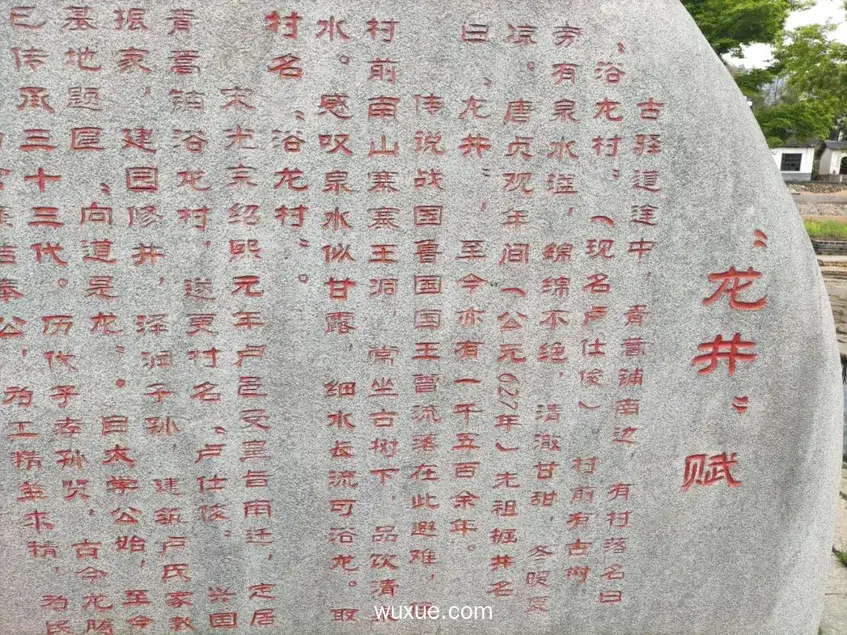 “龙井”赋
古驿道途中，青蒿铺南边，有村落名曰
“浴龙村”（现名卢仕俊）。村前有古树
旁有泉水溢，绵绵不绝，清澈甘甜，冬暖夏
凉。唐贞观年间（公元627年）尤祖掘井名
曰“龙井”，至今亦有一千五百余年。
传说战国鲁国国王曾流落在此避难，
村前南山寨寨王洞，常坐古树下，品饮清
水。感叹泉水似甘露，细水长流可浴龙。取
村名“浴龙村”。
宋光宗绍熙元年卢邑受皇旨南迁，定居
青蒿铺浴龙村，遂更村名“卢仕俊”。兴国
振家，建园修井，泽润子孙，建筑卢氏家
基地题匾“向道是龙”。自太学公始，至今
已传承三十三代。历代子孝孙贤，古今龙腾
奉公，为工精益求精，为民
wuxue.com